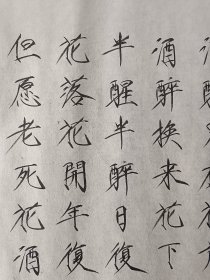 酒醉换来花下
半醒半醉日復
花落花開年復
但愿老死花酒